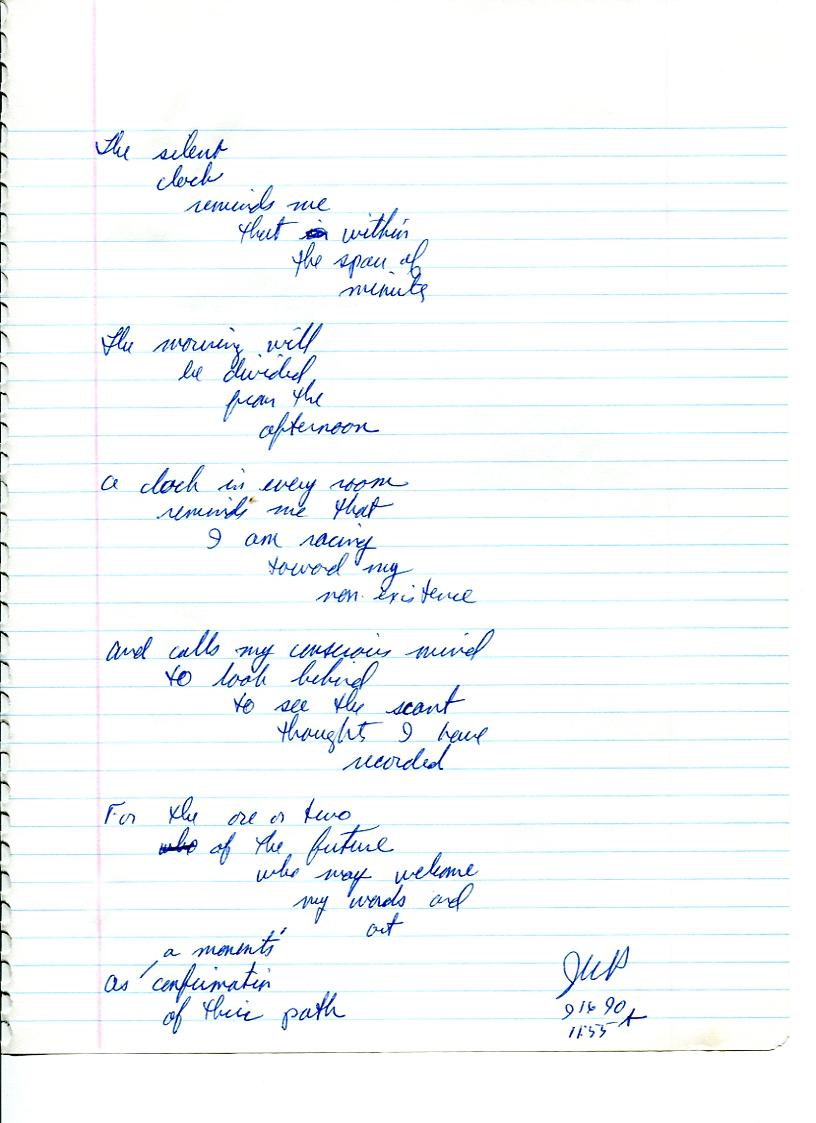 The silent
clock
reminds me
that within
the span of
minutes
The morning will
be divided
from the
afternoon
a clock in every room
reminds me that
I am racing
toward my
non-existence
and calls my conscious mind
to look behind
to see the scant
thoughts I have
recorded
For the one or two
who of the future
who may welcome
my words and
art
a moments'
as confirmation
of their path
9 16 90
11:55 A